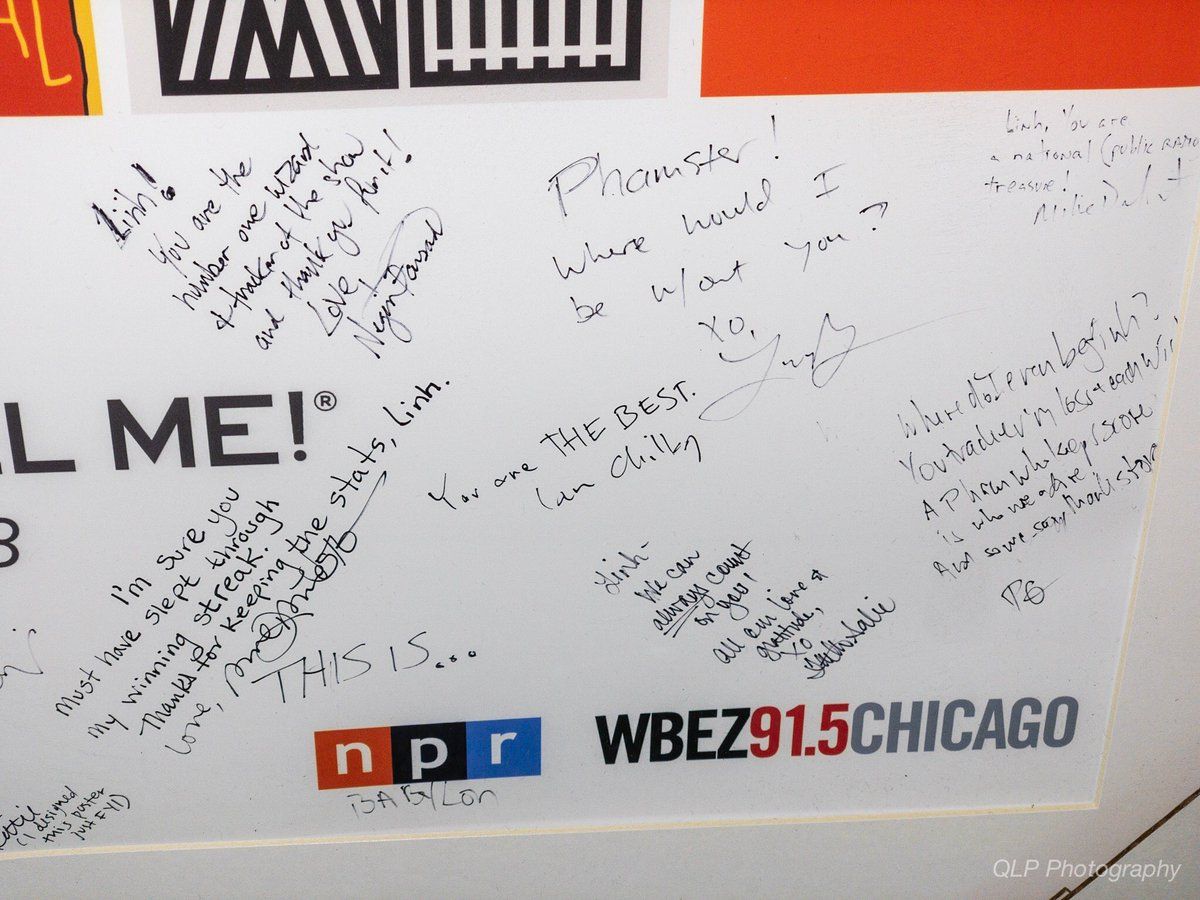 AL
Linh!
You are the
number one wizard
& tracker of the show
and thank you for it!
Love!
Negin Farsad
Phamster!
Where would I
be w/out you?
XO,
Linh, You are
a national (public RADIO
treasure!
L ME!®
8
You are THE BEST.
Ian Chillag
Where do I even begin?
You track every loss + each win
A Pham who keeps score
is who we adore
And some say thanks
PG
I'm sure you
must have slept through
my winning streak.
Thanks for keeping the stats, Linh.
Love,
Linh-
We can
always count
on you!
All our love &
gratitude,
XO
THIS IS...
npr
BABYLON
WBEZ91.5CHICAGO
(I designed
this poster
just FYI)
QLP Photography